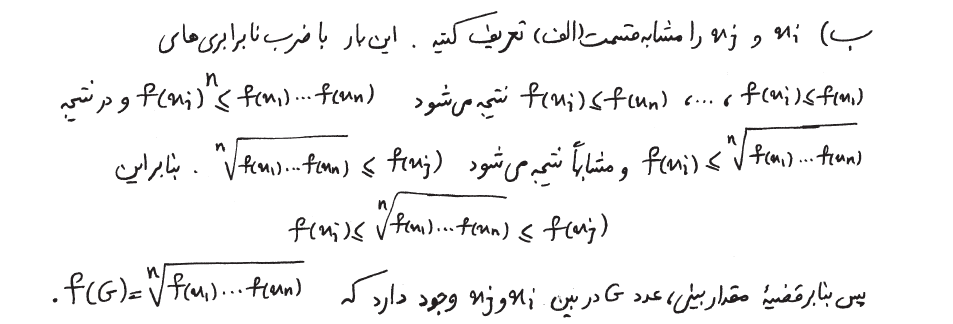 ب) xᵢ و xⱼ را مشابه قسمت (الف) تعریف کنید . این بار با ضرب نابرابری‌های
f(xᵢ)≤f(x₁) ، ... ، f(xᵢ)≤f(xₙ) نتیجه می‌شود f(xᵢ)ⁿ≤f(x₁)...f(xₙ) و در نتیجه
f(xᵢ)≤ⁿ√f(x₁)...f(xₙ) و مشابهاً نتیجه می‌شود ⁿ√f(x₁)...f(xₙ) ≤ f(xⱼ) . بنابراین
f(xᵢ)≤ ⁿ√f(x₁)...f(xₙ) ≤ f(xⱼ)
پس بنابر قضیهٔ مقدار بینی، عدد G در بین xᵢ و xⱼ وجود دارد که f(G)=ⁿ√f(x₁)...f(xₙ) .